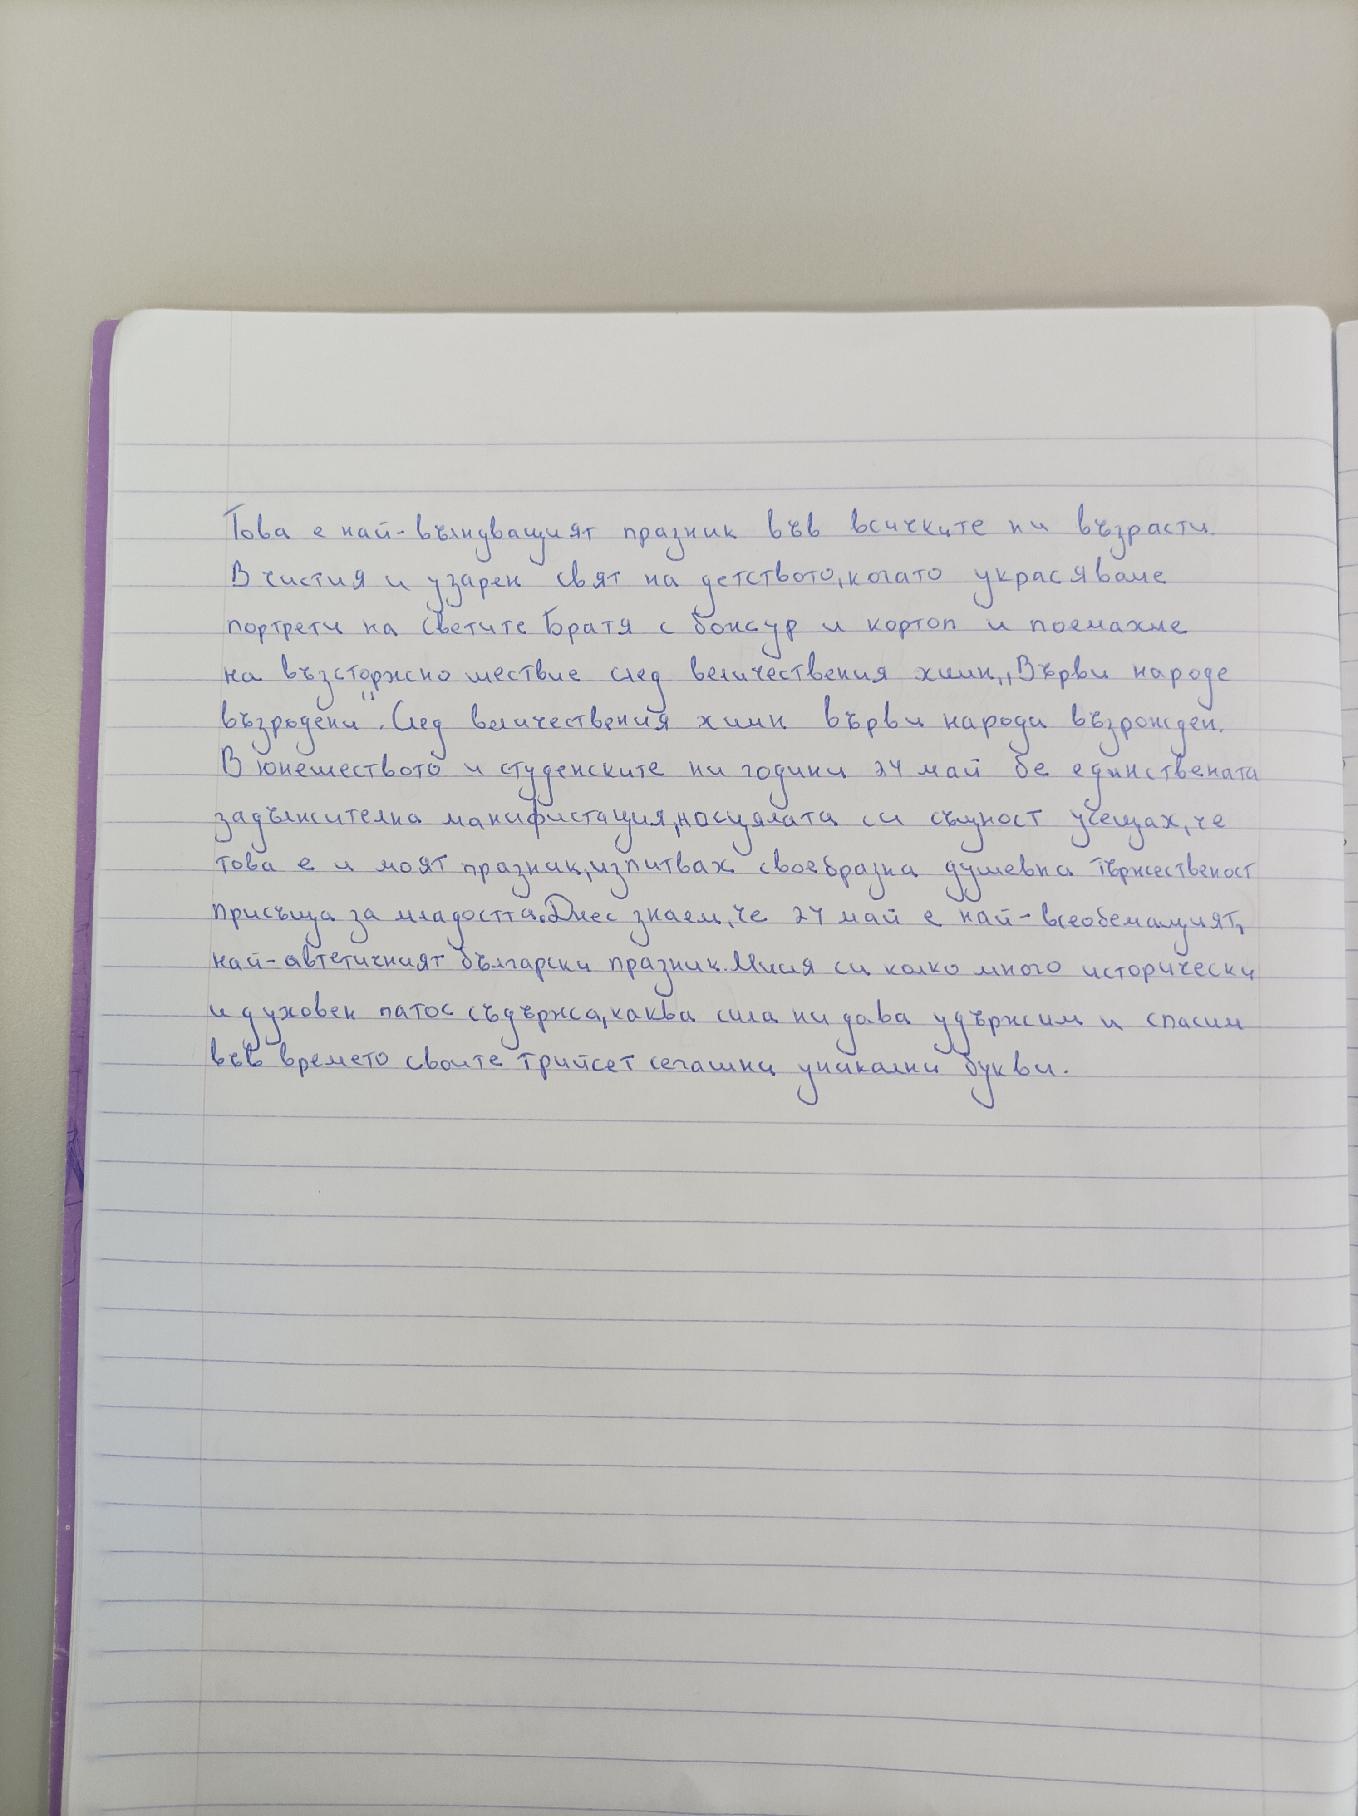 Това е най-вълнуващият празник във всичките ни възрасти.
В чистия и узарен свят на детството, когато украсяваме
портрети на светите Братя с божур и кортоп и поемахме
на възсторжено шествие след величествения химн „Върви народе
възродени". След величествения химн върви народи възрожден.
В юнешеството и студенските ни години 24 май бе единствената
задължителна манифистация, носцялата си същност усещах, че
това е и моят празник, изпитвах своебразна душевна тържественост
присъща за младостта. Днес знаем, че 24 май е най-всеобемащият,
най-автетичният български празник. Мисля си колко много исторически
и духовен патос съдържа, каква сила ни дава удържим и спасим
във времето своите трийсет сегашни уникални букви.